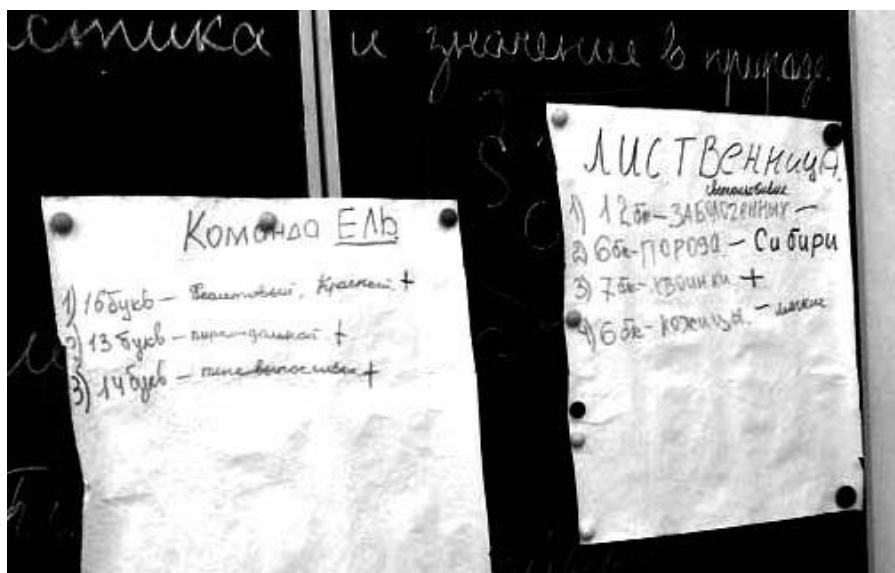 истика и значение в природе.
Команда ЕЛЬ
1) 16 букв – Фиолетовый, Красный +
2) 13 букв – пирамидальной +
3) 14 букв – теневыносливая +
ЛИСТВЕННИЦА.
светолюбивые
1) 12 бк – ЗАБОЛОЧЕННЫХ –
2) 6 бк – ПОРОДА – Сибири
3) 7 бк – ХВОИНКИ +
4) 6 бк – КОЖИЦЫ. – мягкие